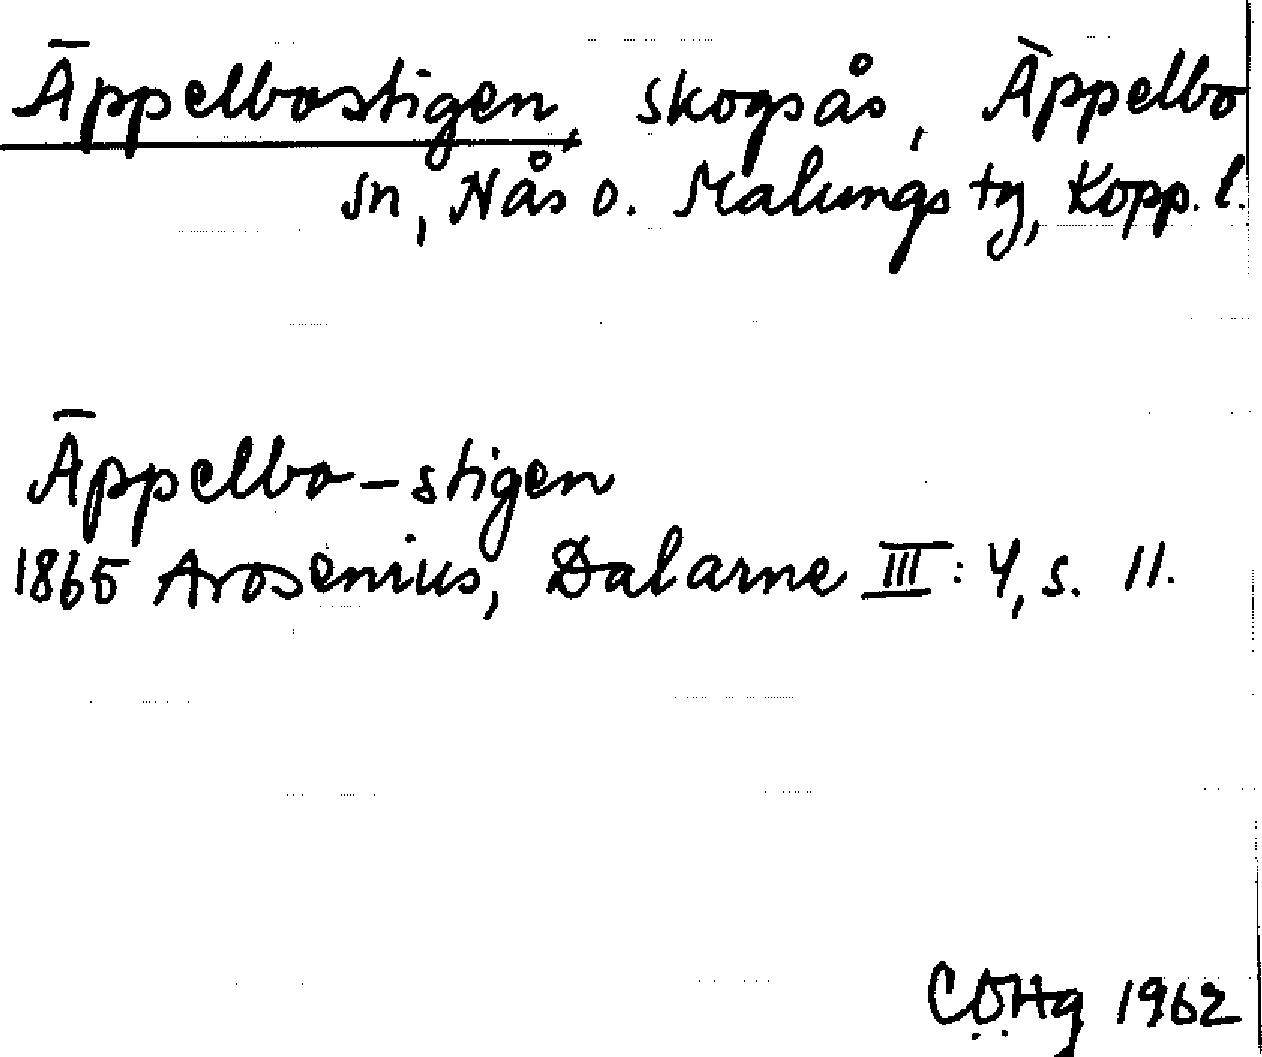 Äppelbostigen, skogsås, Äppelbo
sn, Nås o. Malungs tg, Kopp. l.
Äppelbo-stigen
1865 Arosenius, Dalarne III: 4, s. 11.
CÖHg 1962